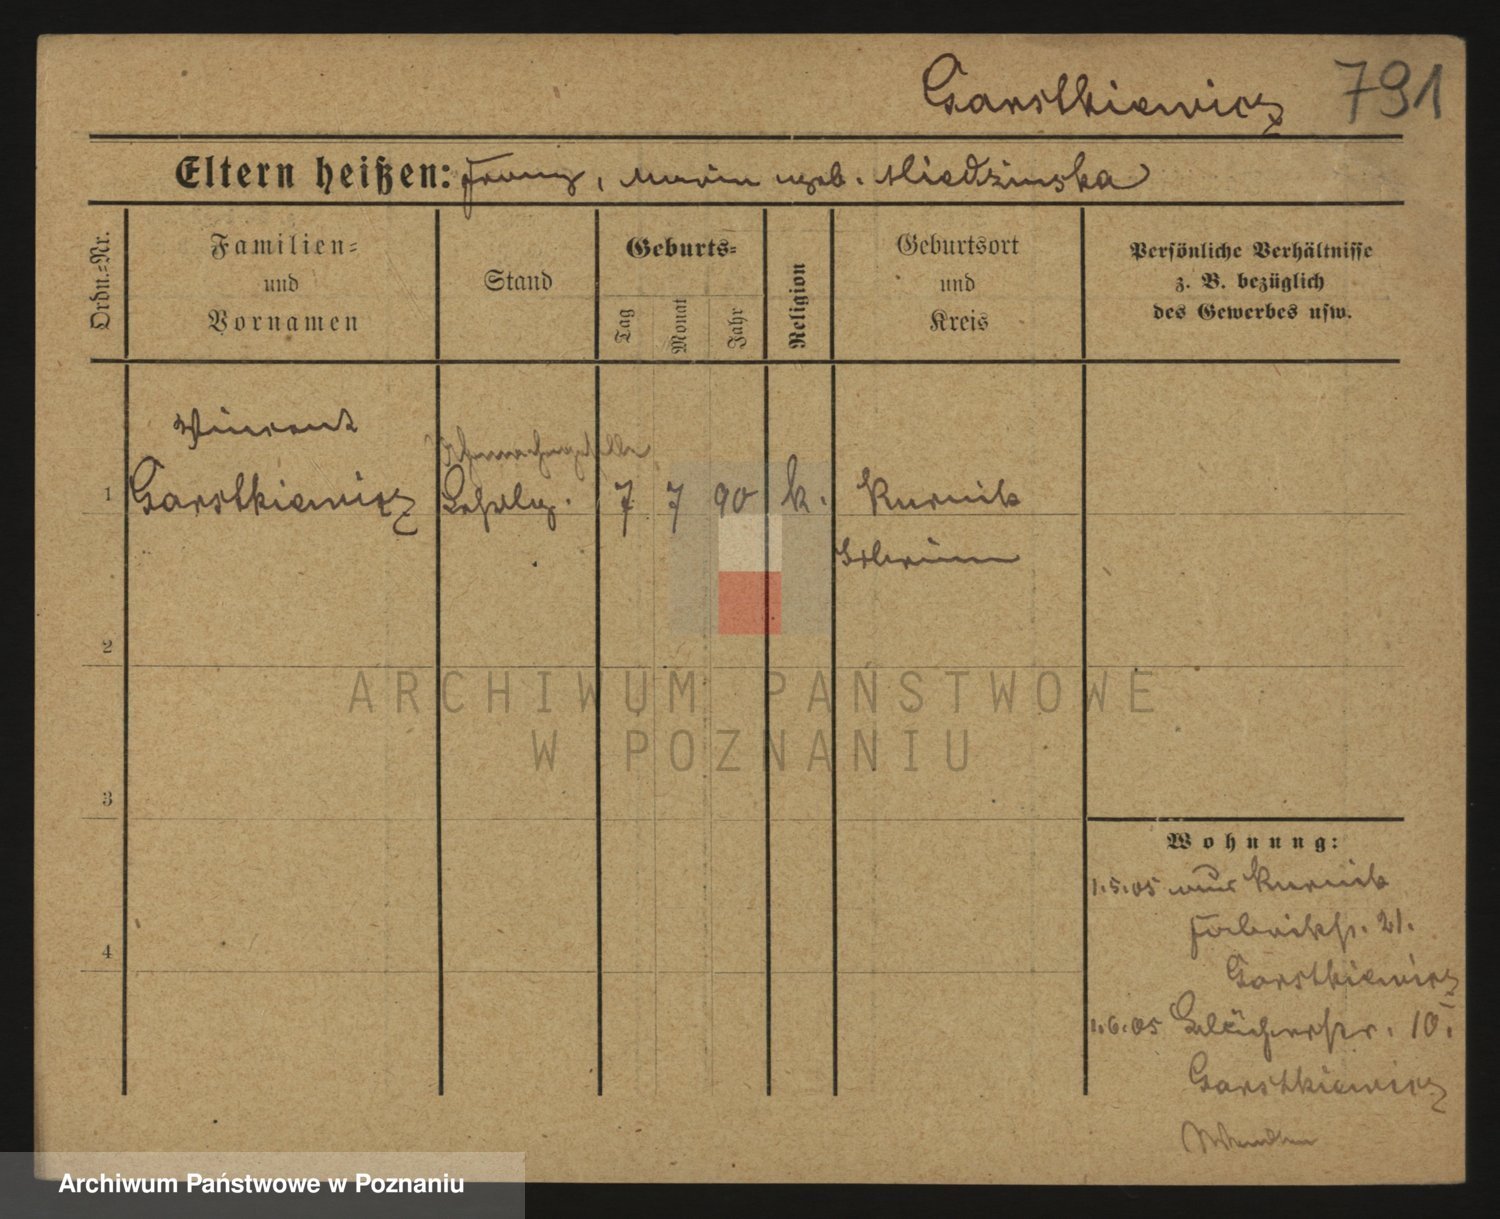 Garstkiewicz 791
Eltern heißen: Franz, Maria geb. Miedzinska
Ordn.-Nr.
Familien-
und
Vornamen
Stand
Geburts-
Tag
Monat
Jahr
Religion
Geburtsort
und
Kreis
Persönliche Verhältnisse
z. B. bezüglich
des Gewerbes usw.
Vincent
1 Garstkiewicz Lehrlg. 7 7 90 k. Kurnik
Schrimm
2
3
4
ARCHIWUM PAŃSTWOWE
W POZNANIU
Wohnung:
1.5.05 aus Kurnik
Fabrikstr. 21.
Garstkiewicz
1.6.05 Blücherstr. 10 I.
Garstkiewicz
Wenden
Archiwum Państwowe w Poznaniu